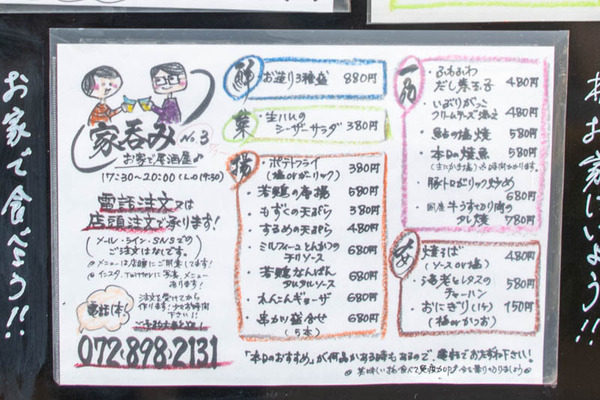 お家で食べよう!!
家呑み No.3
お家で居酒屋♪
17:30~20:00(L.O 19:30)
電話注文又は
店頭注文で承ります!
(メール・ライン・SNSでの
ご注文はなしです。)
◎メニューは店頭にご用意してます!
◎インスタ、Twitterに写真、メニュー
あります!
電話1本!
注文を受けてから
作ります!
072-898-2131
鮮
・お造り3種盛 880円
菜
・生ハムの
シーザーサラダ 380円
揚
・ポテトフライ
(塩orガーリック) 380円
・若鶏の唐揚 580円
・もずくの天ぷら 380円
・するめの天ぷら 480円
・ミルフィーユとんかつの
チリソース 680円
・若鶏なんばん
タルタルソース 680円
・れんこんギョーザ 680円
・串カツ盛合せ
(5本) 680円
一品
・ふわふわ
だし巻玉子 480円
・いぶりがっこ
クリームチーズ添え 480円
580円
・本日の焼魚 580円
・豚トロガーリック炒め
680円
・国産牛うす切り肉の
タレ焼 780円
・焼そば
(ソースor塩) 480円
・海老とレタスの
チャーハン 580円
・おにぎり(1ヶ) 150円
(梅orかつお)
「本日のおすすめ」が何品かある時もあるので、気軽にお尋ね下さい!